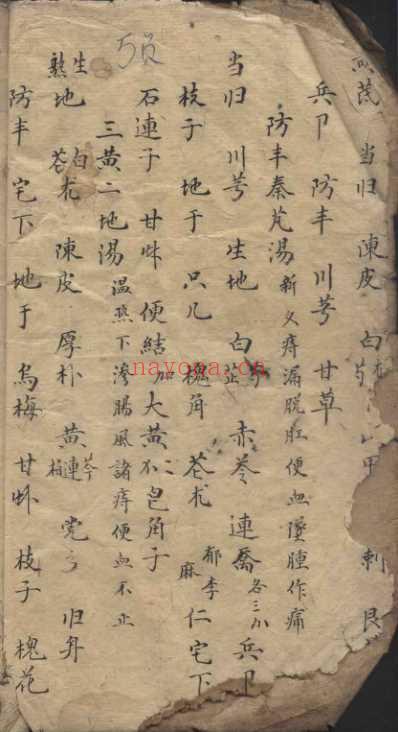 芪 当归 陳皮 白朮芍 甲 刺 艮
兵卩 防丰 川芎 甘草
防丰秦艽湯 新久痔漏脫肛便血墜腫作痛
当归 川芎 生地 白芷 赤苓 連喬各三 兵卩
枝子 地于 只几 槐角 苍朮 麻郁李仁 宅下
石連子 甘艸 便結加大黄 不 皂角子
三黄二地湯 温 下滲腸風諸痔便血不止
生熟地 白苍朮 陳皮 厚朴 黄芩連栢 党 归身
防丰 宅下 地于 烏梅 甘艸 枝子 槐花
5页
nayona.ca